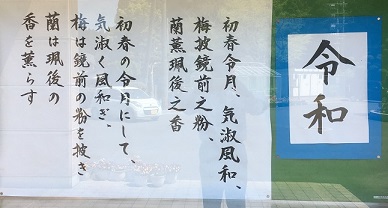 令和
初春令月、気淑風和、
梅披鏡前之粉、
蘭薫珮後之香
初春の令月にして、
気淑く風和ぎ、
梅は鏡前の粉を披き
蘭は珮後の
香を薫らす